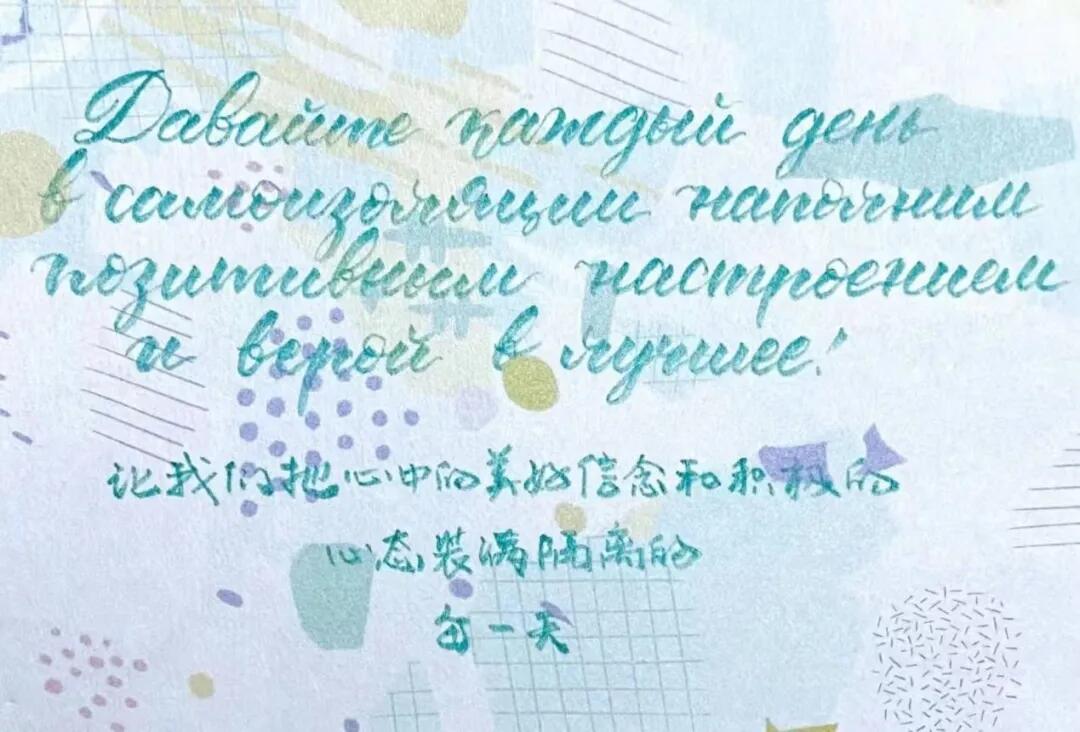 Давайте каждый день
в самоизоляции наполним
позитивным настроением
и верой в лучшее!
让我们把心中的美好信念和积极的
心态装满隔离的
每一天